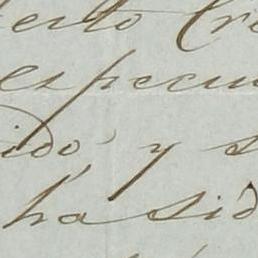 erto Cre
especu
ido, y s
ha sid